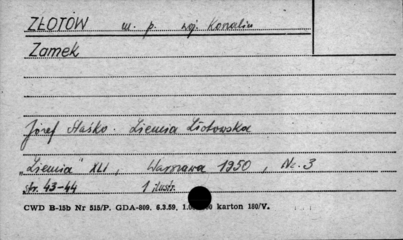 ZŁOTÓW m. p. woj. Koszalin
Zamek
Józef Staśko. Ziemia Złotowska
„Ziemia” XLI, Warszawa 1950, Nr. 3
str. 43-44 1 ilustr.
CWD B-15b Nr 515/P. GDA-809. 6.3.59. karton 180/V.